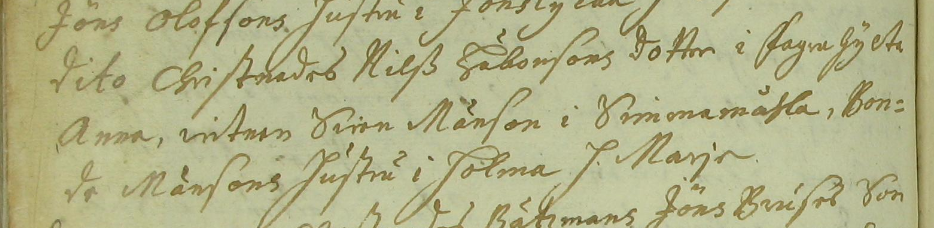 Jöns Olofsons Hustru i
dito Christnades Nilß Håkonsons dotter i Fagrahylta
Anna, vitnen Sven Månson i Simonamåhla, Bon=
de Månsons Hustru i Holma H. Marje
Båtzmans Jöns Bruses Son